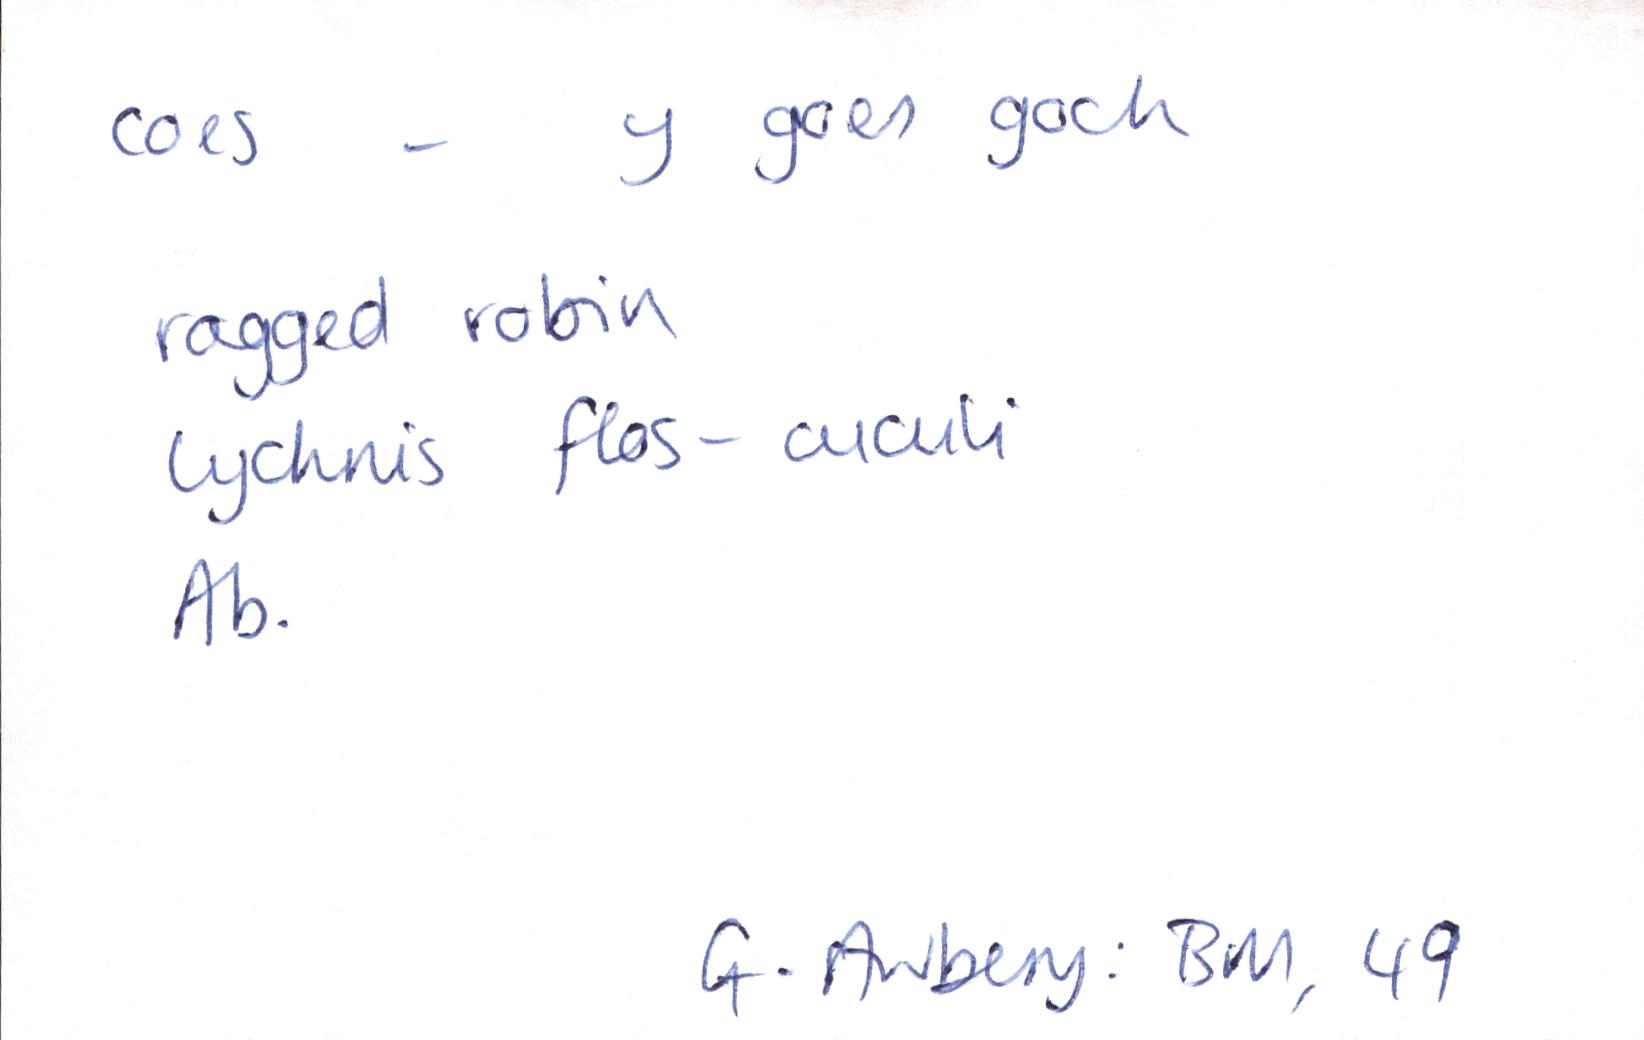 coes - y goes goch
ragged robin
Lychnis flos-cuculi
Ab.
G. Awbery: BM, 49